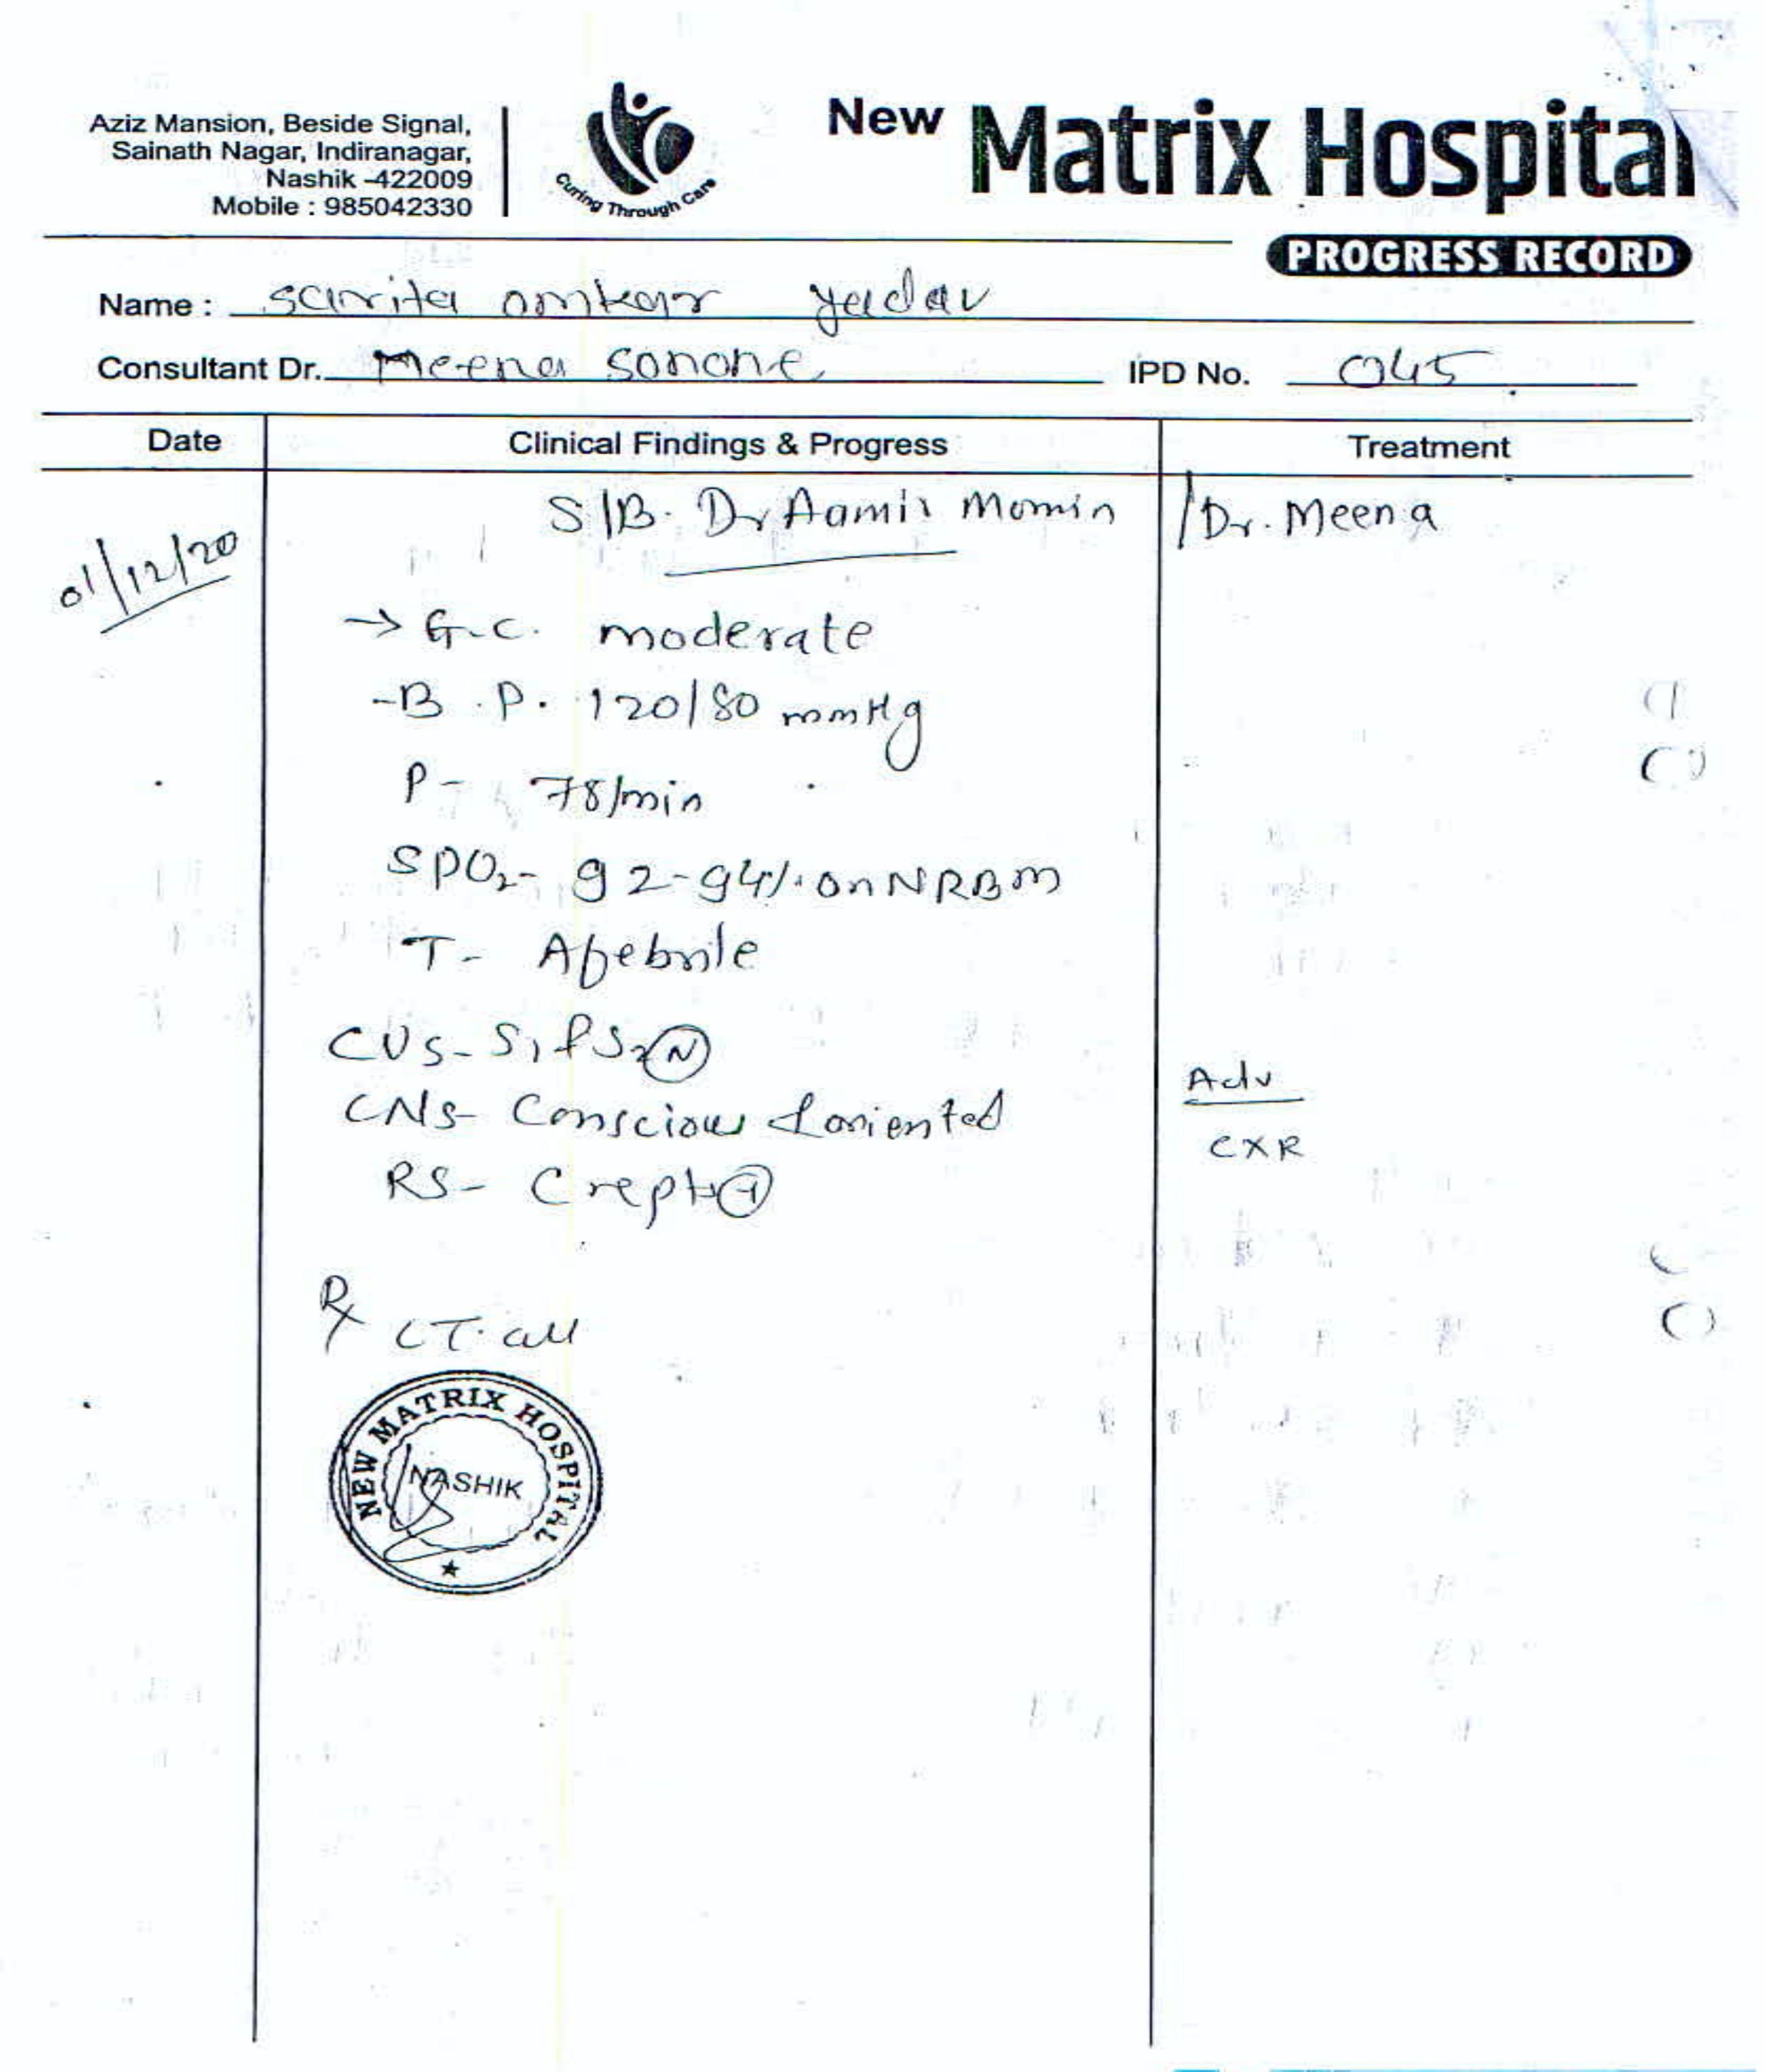 Aziz Mansion, Beside Signal,
Sainath Nagar, Indiranagar,
Nashik -422009
Mobile : 985042330
Curing Through Care
New Matrix Hospital
PROGRESS RECORD
Name : Sarita omkar yadav
Consultant Dr. Meena Sonone IPD No. 045
Date Clinical Findings & Progress Treatment
S/B. Dr Aamir Momin /Dr. Meena
01/12/20
→ G.C. moderate
-B.P. 120/80 mmHg
P- 78/min
SPO₂- 92-94% on NRBM
T- Afebrile
CVS- S₁ & S₂ (N)
Adv
CNS- Conscious & oriented
CXR
RS- Crepts (+)
Rx CT. all
NEW MATRIX HOSPITAL
NASHIK